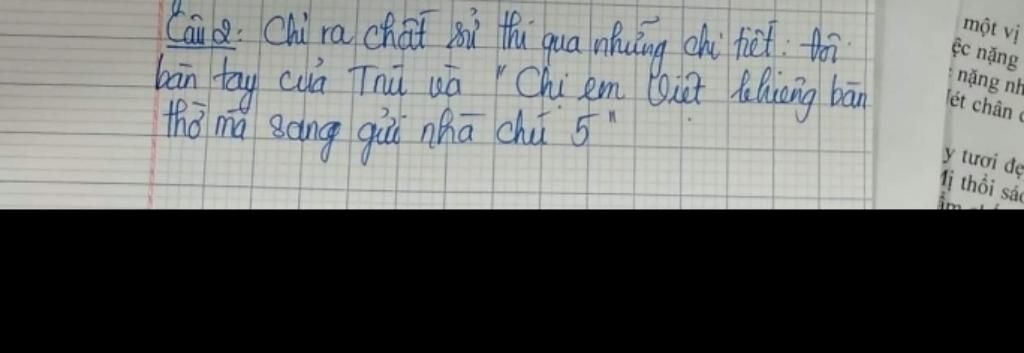 Câu 2: Chỉ ra chất sử thi qua những chi tiết: Đôi
bàn tay của Tnú và "Chị em Việt khiêng bàn
thờ má sang gửi nhà chú 5"
một vị
ệc nặng
nặng nh
ét chân
y tươi đẹ
Mị thổi sác